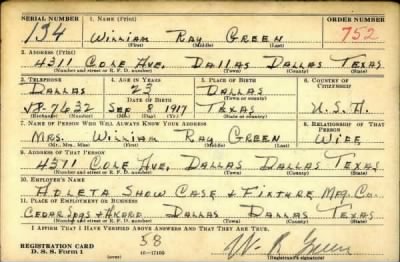 SERIAL NUMBER 1. NAME (Print) ORDER NUMBER
134 William Ray Green 752
(First) (Middle) (Last)
2. ADDRESS (Print)
4311 Cole Ave. Dallas Dallas Texas
(Number and street or R. F. D. number) (Town) (County) (State)
3. TELEPHONE 4. AGE IN YEARS 5. PLACE OF BIRTH 6. COUNTRY OF CITIZENSHIP
Dallas 23 Dallas
(Exchange) DATE OF BIRTH (Town or county)
J8-7632 Sep 8 1917 Texas U.S.A.
(Number) (Mo.) (Day) (Yr.) (State or country)
7. NAME OF PERSON WHO WILL ALWAYS KNOW YOUR ADDRESS 8. RELATIONSHIP OF THAT PERSON
Mrs. William Ray Green Wife
(Mr., Mrs., Miss) (First) (Middle) (Last)
9. ADDRESS OF THAT PERSON
4311 Cole Ave. Dallas Dallas Texas
(Number and street or R. F. D. number) (Town) (County) (State)
10. EMPLOYER'S NAME
Adleta Show Case & Fixture Mfg. Co.
11. PLACE OF EMPLOYMENT OR BUSINESS
Cedar Spgs & Dallas Dallas Texas
(Number and street or R. F. D. number) (Town) (County) (State)
I AFFIRM THAT I HAVE VERIFIED ABOVE ANSWERS AND THAT THEY ARE TRUE.
REGISTRATION CARD 58 W R Green
D. S. S. Form 1 (over) 16-17105 (Registrant's signature)